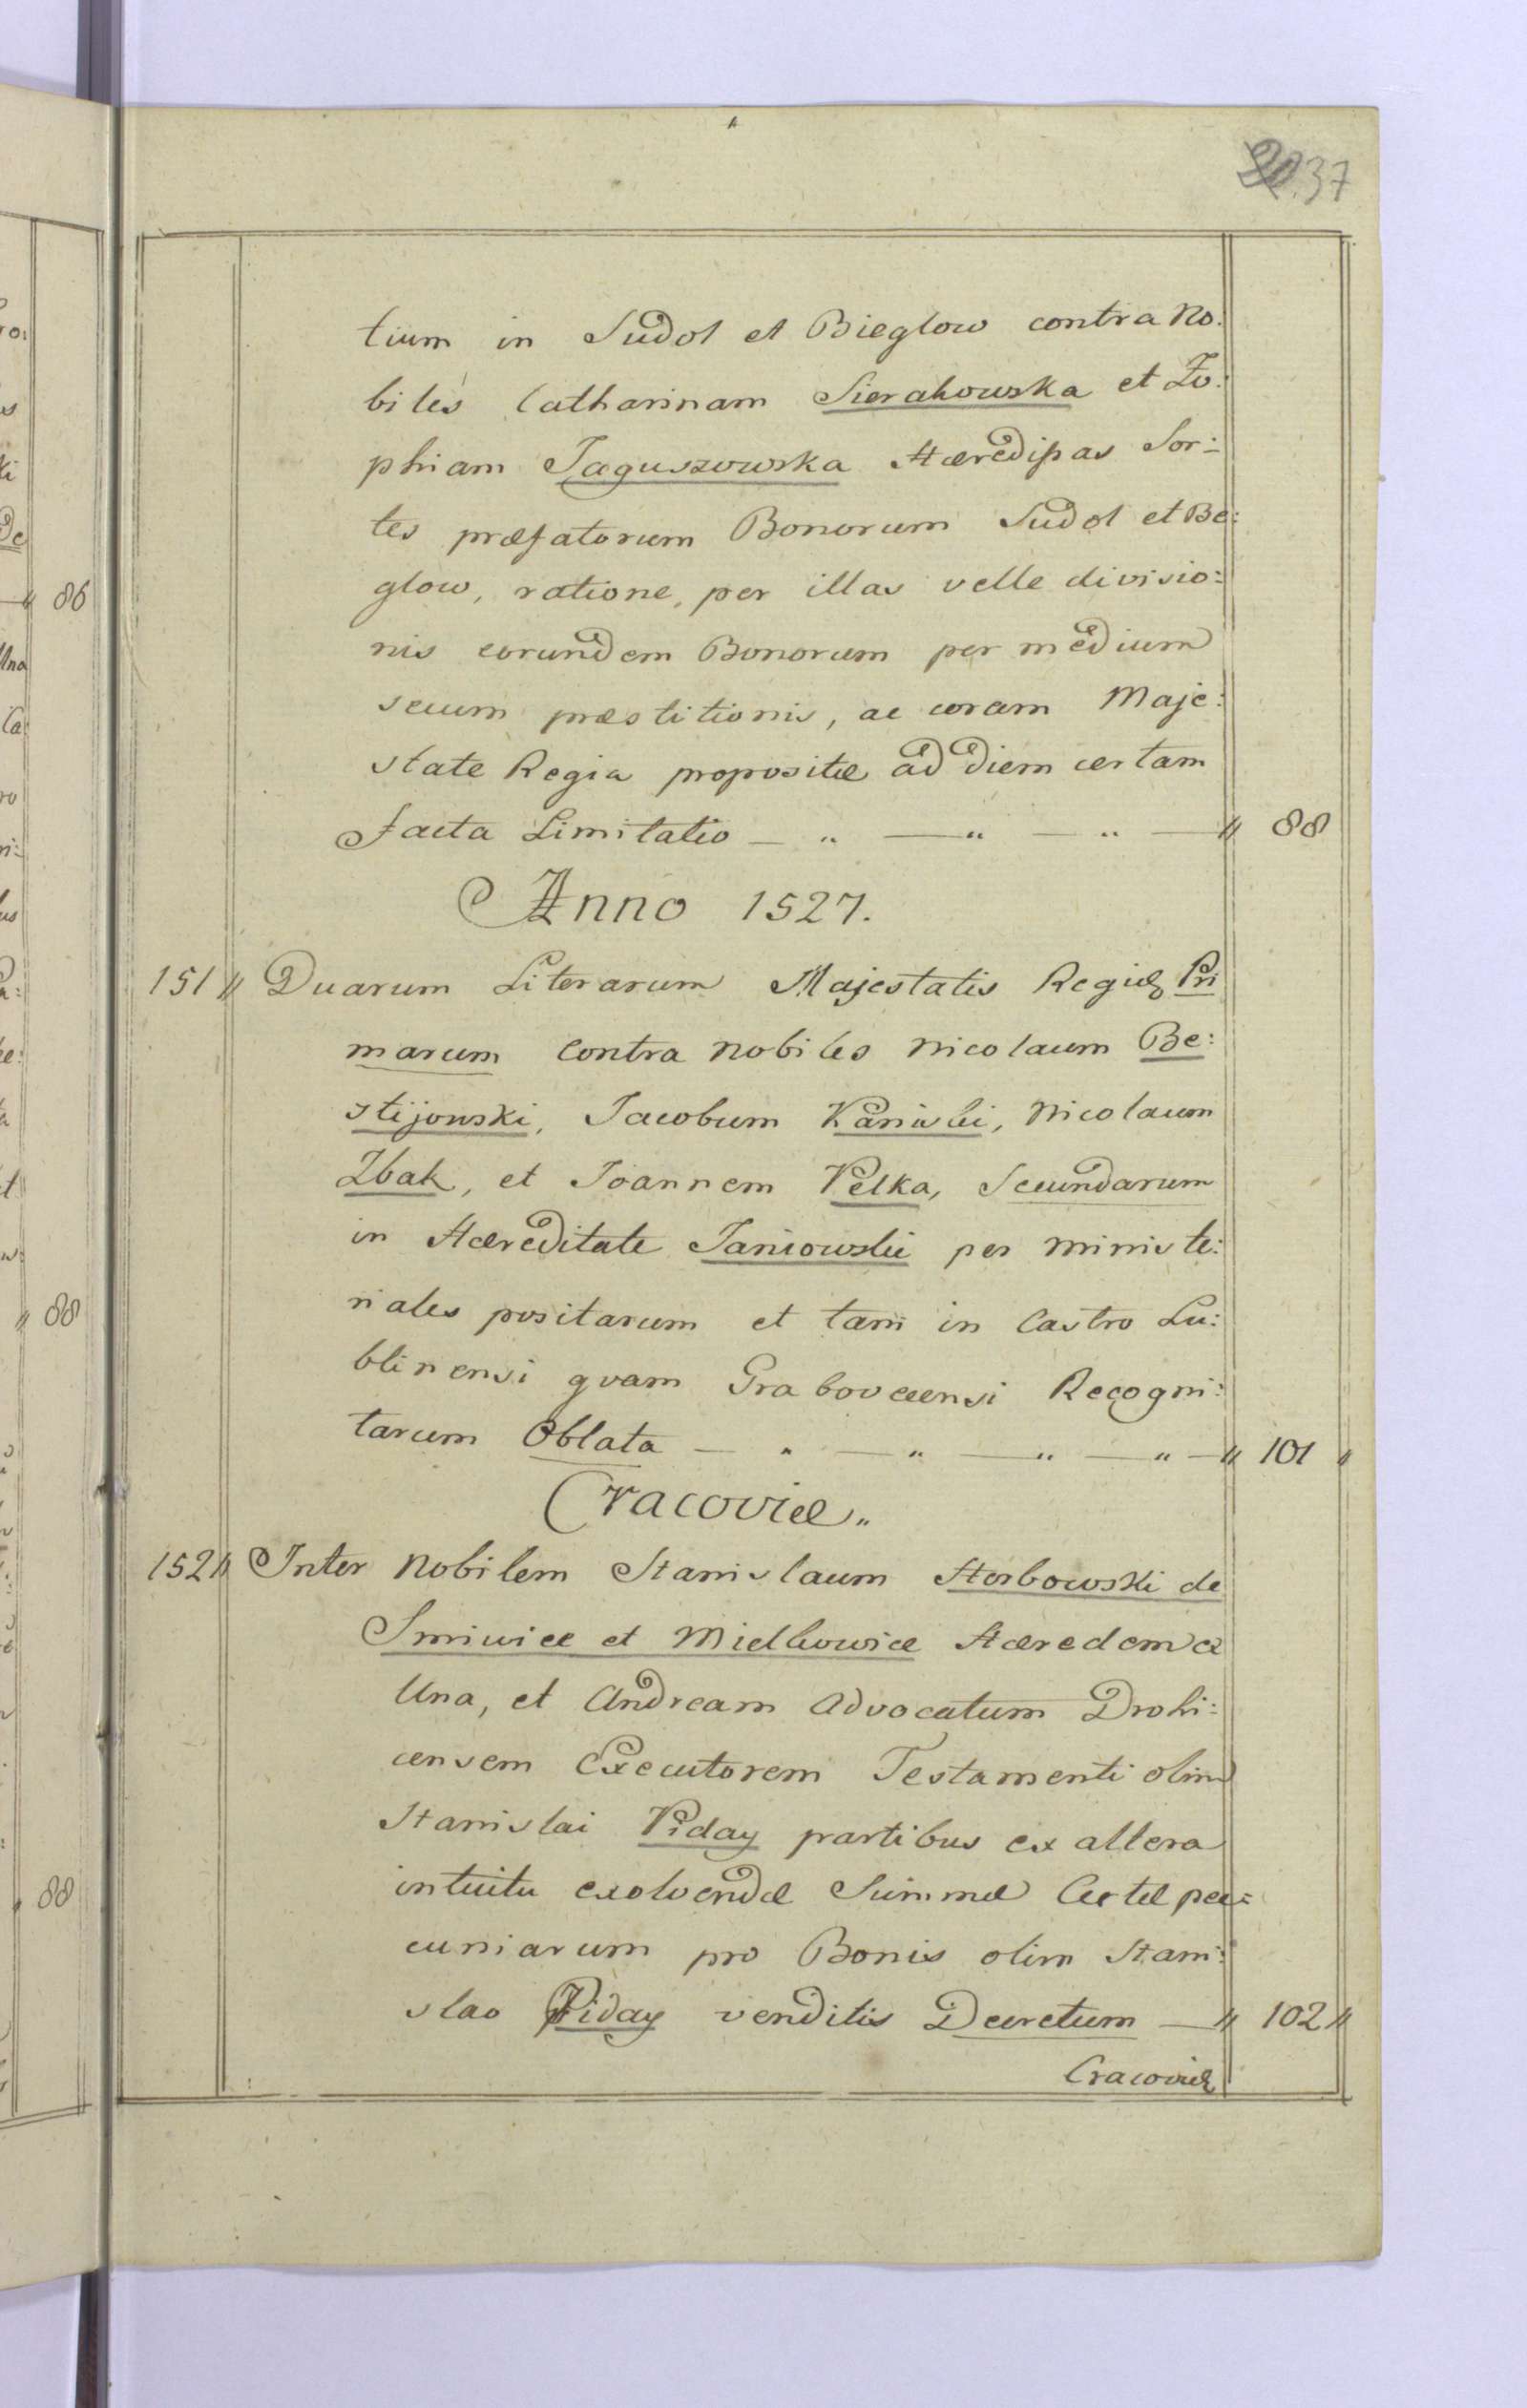 37
tium in Sudol et Bieglow contra No:
biles Catharinam Sierakowska et Zo:
phiam Jaguszowska Hæredissas Sor:
tes præfatorum Bonorum Sudol et Be:
glow, ratione, per illas velle divisio:
nis eorundem Bonorum per medium
secum præstitionis, ac coram Maje:
state Regia propositæ ad diem certam
facta Limitatio — " — " — " — " 88
Anno 1527.
151 " Duarum Literarum Majestatis Regiæ Pri
marum contra Nobiles Nicolaum Be:
stijonski, Jacobum Kaniski, Nicolaum
Zbak, et Joannem Pelka, Secundarum
in Hæreditate Janiowskie per Ministe:
riales positarum et tam in Castro Lu:
blinensi quam Graboveensi Recogni:
tarum Oblata — " — " — " — " — " 101 "
Cracoviæ "
152 " Inter Nobilem Stanislaum Horbowski de
Smiwice et Mielhowice Hæredem a
Una, et Andream Advocatum Drohi:
censem Executorem Testamenti olim
Stanislai Piday partibus ex altera
intuitu exolvendæ Summæ Certæ pec:
cuniarum pro Bonis olim Stani:
slao Piday venditis Decretum — " 102 "
Cracoviæ
86
Una
Ca:
88
88